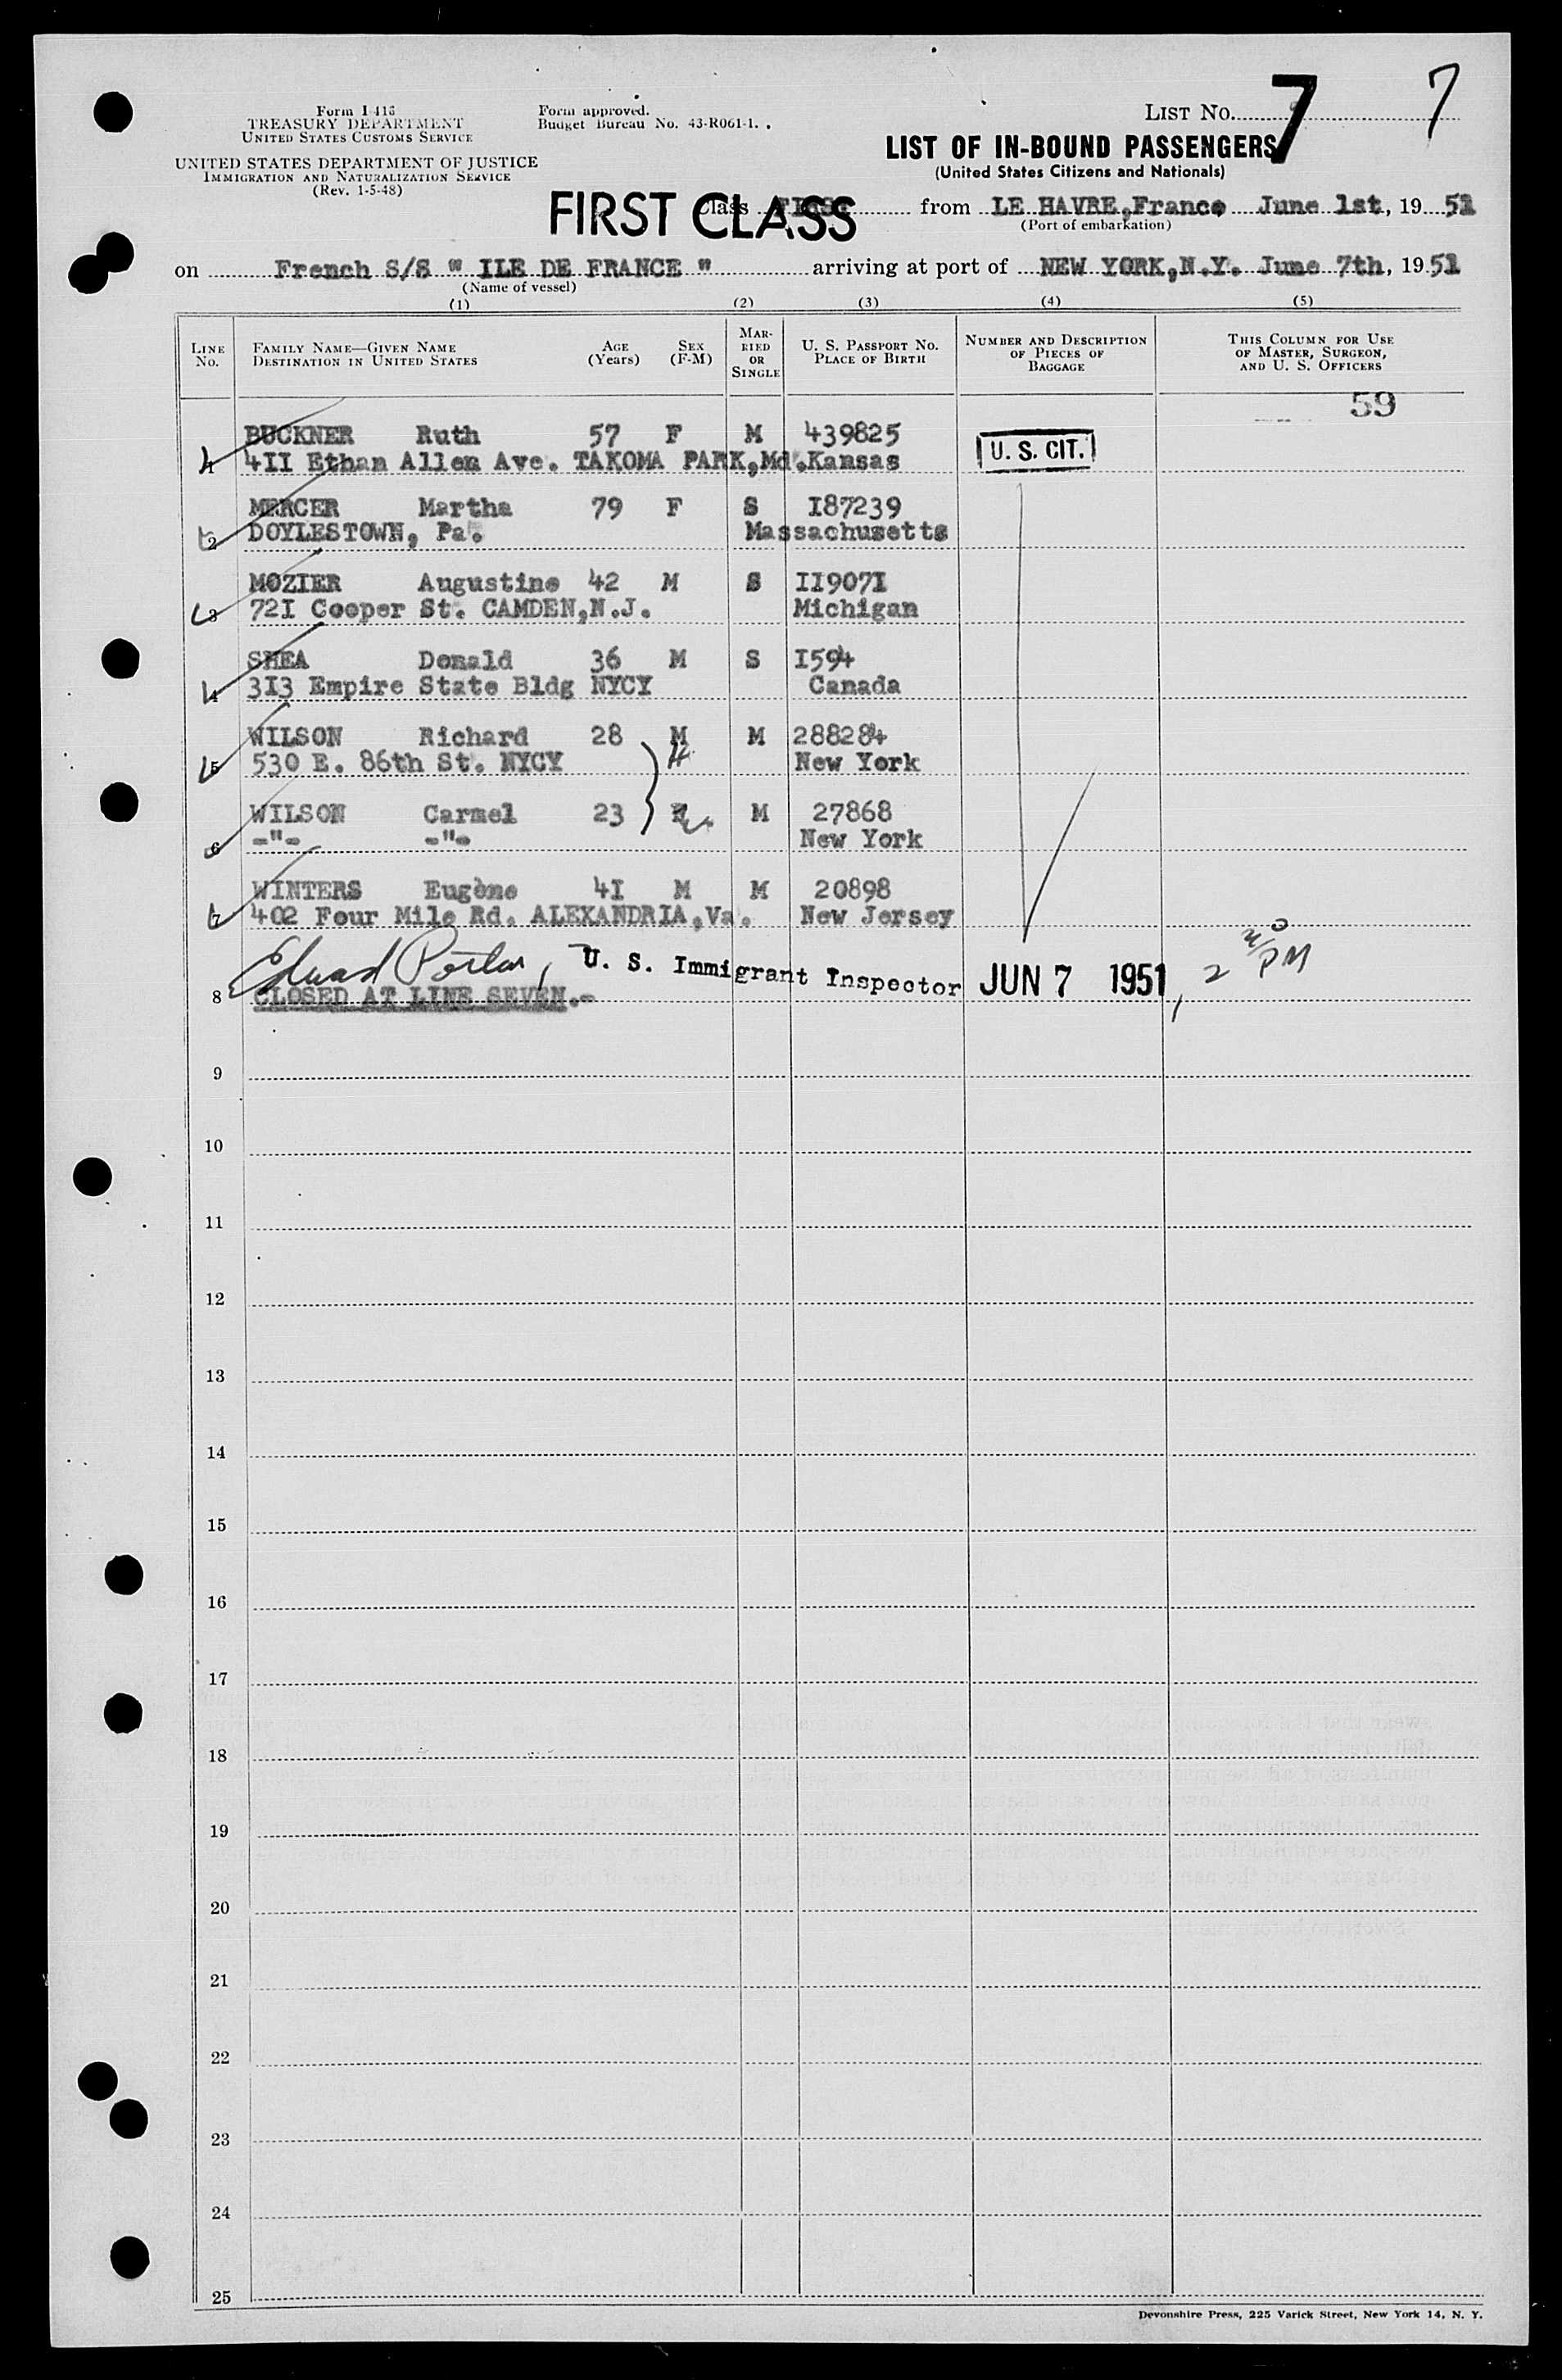 Form I-418
TREASURY DEPARTMENT
UNITED STATES CUSTOMS SERVICE
UNITED STATES DEPARTMENT OF JUSTICE
IMMIGRATION AND NATURALIZATION SERVICE
(Rev. 1-5-48)
Form approved.
Budget Bureau No. 43-R061-1.
LIST NO. 7 7
LIST OF IN-BOUND PASSENGERS
(United States Citizens and Nationals)
FIRST CLASS
Class First from LE HAVRE,France June 1st, 1951
(Port of embarkation)
on French S/S " ILE DE FRANCE " arriving at port of NEW YORK,N.Y. June 7th, 1951
(Name of vessel)
(1) (2) (3) (4) (5)
LINE NO. FAMILY NAME—GIVEN NAME DESTINATION IN UNITED STATES AGE (Years) SEX (F-M) MARRIED OR SINGLE U. S. PASSPORT NO. PLACE OF BIRTH NUMBER AND DESCRIPTION OF PIECES OF BAGGAGE THIS COLUMN FOR USE OF MASTER, SURGEON, AND U. S. OFFICERS
59
BUCKNER Ruth 57 F M 439825
1 411 Ethan Allen Ave. TAKOMA PARK,Md.Kansas U. S. CIT.
MERCER Martha 79 F S I87239
2 DOYLESTOWN, Pa. Massachusetts
MOZIER Augustine 42 M S II907I
3 72I Cooper St. CAMDEN,N.J. Michigan
SHEA Donald 36 M S I594
4 3I3 Empire State Bldg NYCY Canada
WILSON Richard 28 M M 288284
5 530 E. 86th St. NYCY H New York
WILSON Carmel 23 F M 27868
6 -"- -"- New York
WINTERS Eugène 4I M M 20898
7 402 Four Mile Rd. ALEXANDRIA,Va. New Jersey
Edward Porter, U. S. Immigrant Inspector JUN 7 1951, 2 PM
8 CLOSED AT LINE SEVEN.-
9
10
11
12
13
14
15
16
17
18
19
20
21
22
23
24
25
Devonshire Press, 225 Varick Street, New York 14, N. Y.